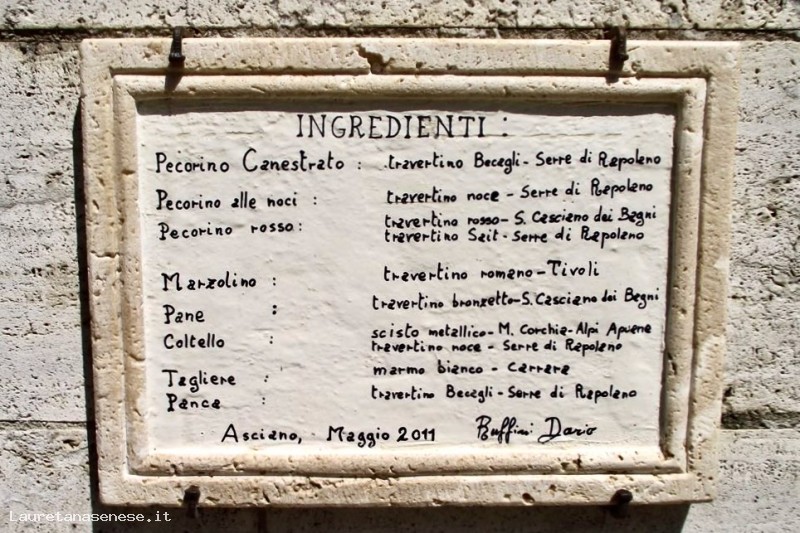 INGREDIENTI:
Pecorino Canestrato : travertino Becagli - Serre di Rapolano
Pecorino alle noci : travertino noce - Serre di Rapolano
Pecorino rosso: travertino rosso - S. Casciano dei Bagni
travertino Sait - Serre di Rapolano
Marzolino : travertino romano - Tivoli
Pane : travertino bronzetto - S. Casciano dei Bagni
Coltello : scisto metallico - M. Corchia - Alpi Apuane
travertino noce - Serre di Rapolano
Tagliere : marmo bianco - Carrara
Panca : travertino Becagli - Serre di Rapolano
Asciano, Maggio 2011 Buffini Dario
Lauretanasenese.it